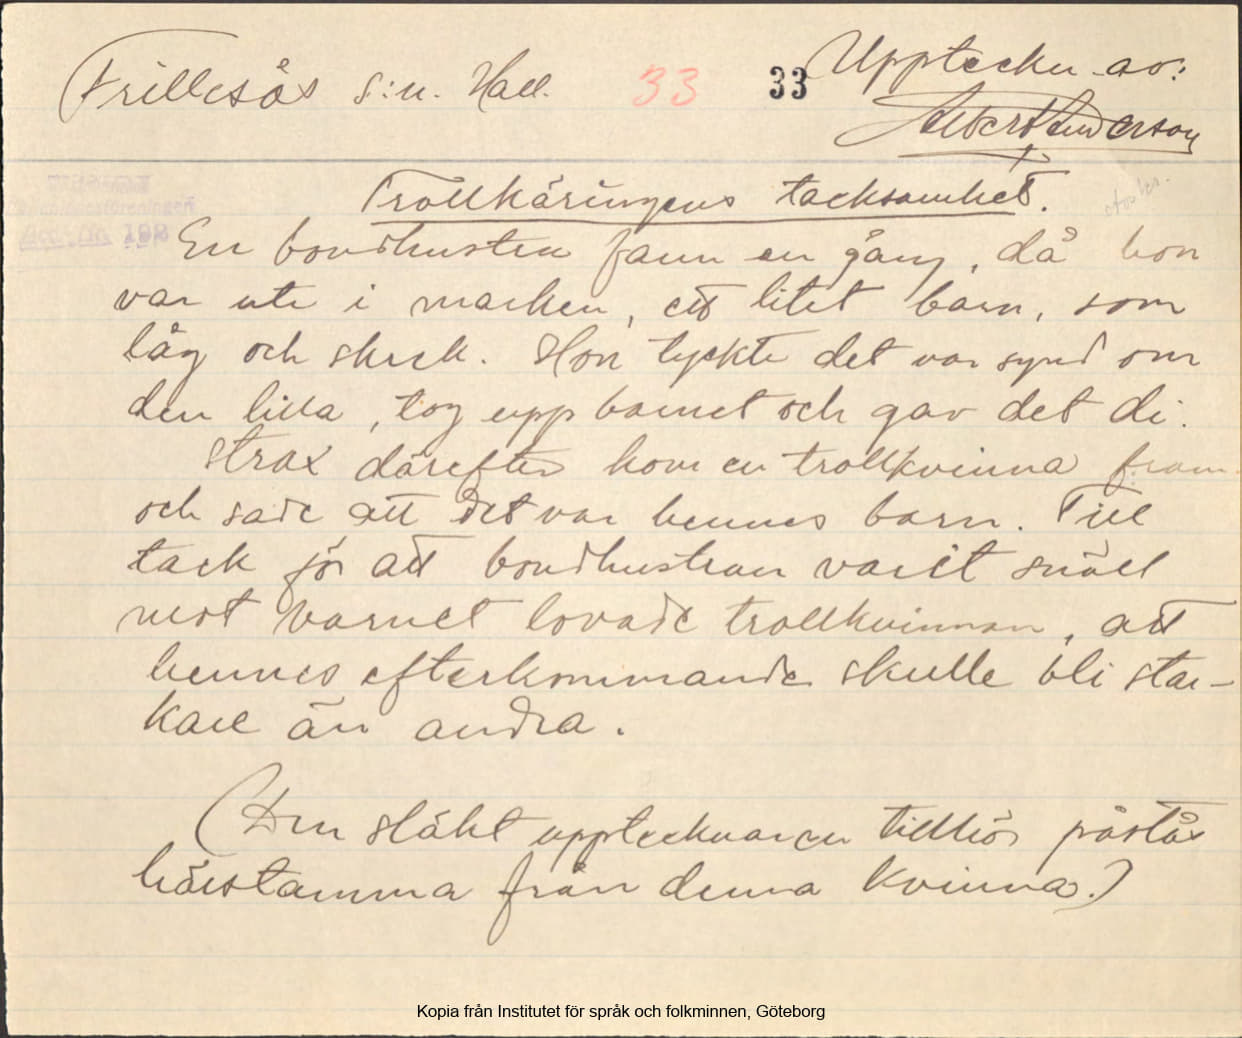 Frillesås s:n. Hall. 33 33 Uppteckn. av:
Albert Anderson
Trollkäringens tacksamhet.
En bondhustru fann en gång, då hon
var ute i marken, ett litet barn, som
låg och skrek. Hon tyckte det var synd om
den lilla, tog upp barnet och gav det di.
Strax därefter kom en trollkvinna fram
och sade att det var hennes barn. Till
tack för att bondhustrun varit snäll
mot barnet lovade trollkvinnan, att
hennes efterkommande skulle bli star-
kare än andra.
(Den släkt upptecknaren tillhör påstås
härstamma från denna kvinna.)
Kopia från Institutet för språk och folkminnen, Göteborg